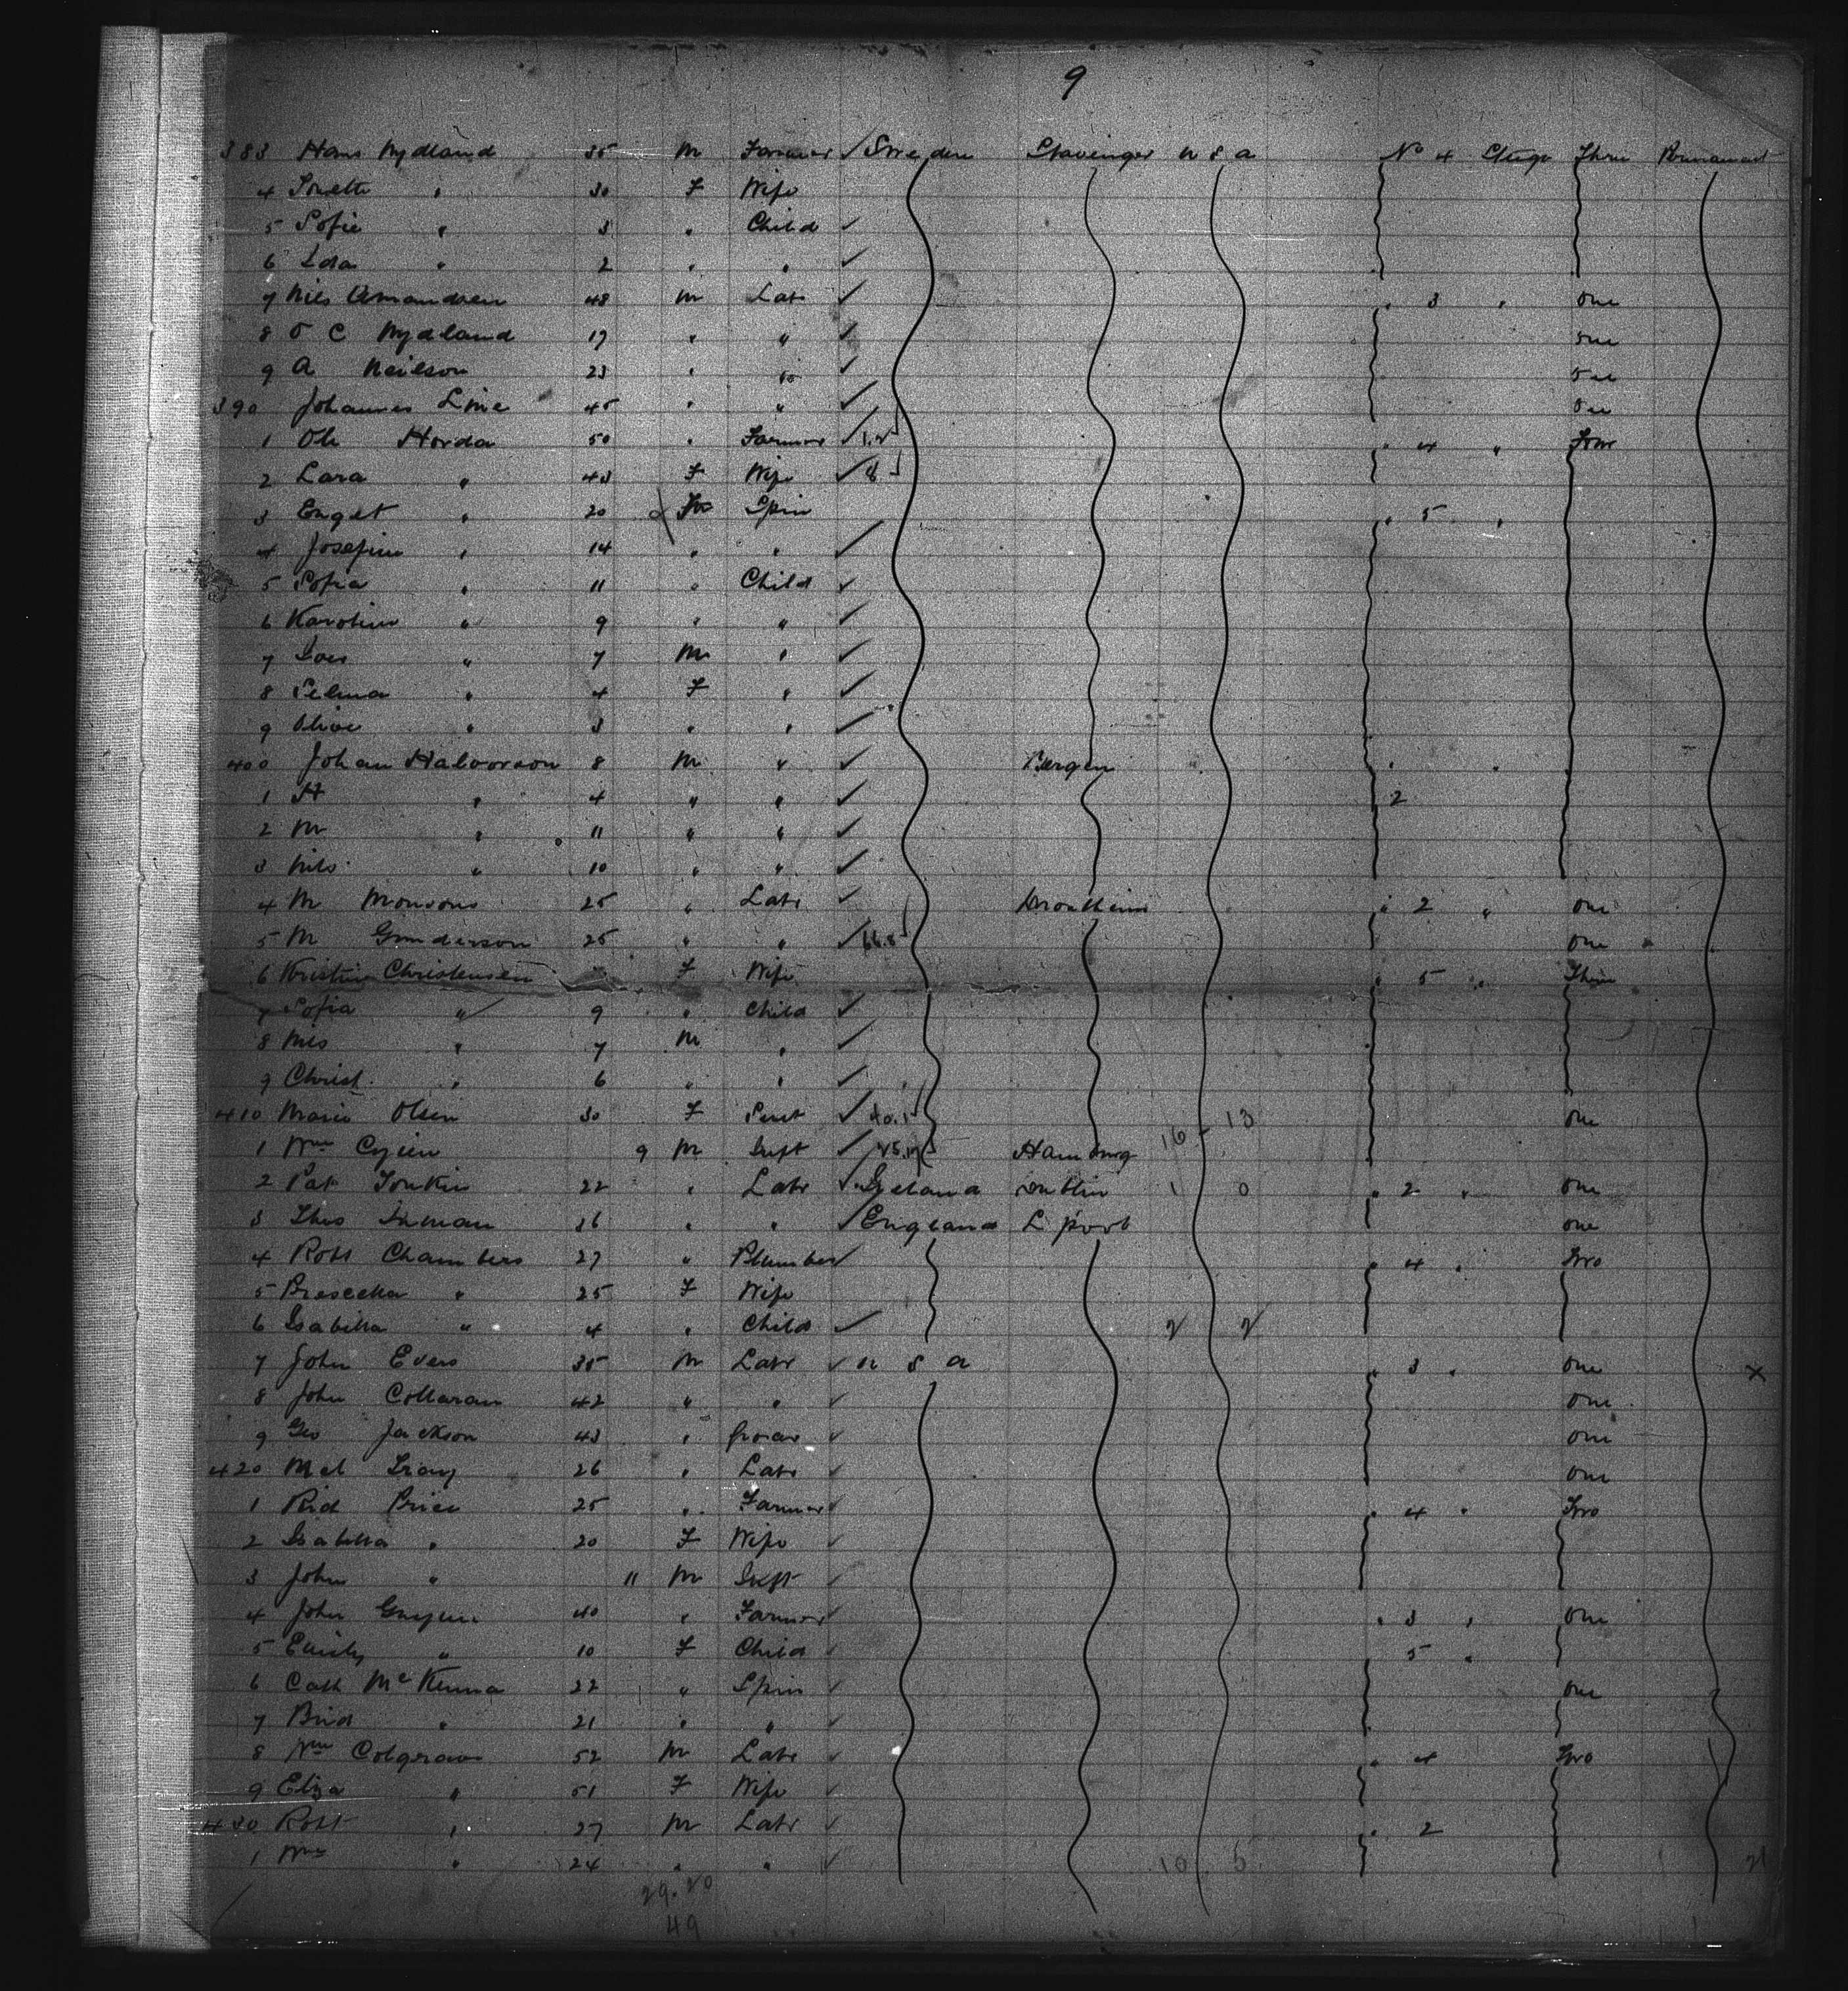 9
383 Hans Nydland 35 M Farmer ✓ Sweden Stavenger U S A No 4 Stege Three Permanent
4 " 30 F Wife
5 Sofie " 3 " Child ✓
6 Ida " 2 " " ✓
7 Nils Amandsen 48 M Labr ✓ " 3 " One
8 O C Nydland 17 " " ✓ One
9 A Neilson 23 " " ✓ One
390 Johannes Line 45 " " ✓ One
1 Ole Horda 50 " Farmer ✓ " 4 " Four
2 Lara " 43 F Wife ✓ 8
3 Enget " 20 Spin " 5 "
4 Josefine " 14 " " ✓
5 Sofia " 11 " Child ✓
6 Karoline " 9 " " ✓
7 " 7 M " ✓
8 Selma " 4 F " ✓
9 Olive " 3 " " ✓
400 Johan Halvorson 8 M " ✓ Bergen " "
1 H " 4 " " ✓ 2
2 M " 11 " " ✓
3 Nils " 10 " " ✓
4 M Monsons 25 " Labr ✓ Drontheim " 2 " One
5 M Gunderson 25 " " ✓ 66.8 One
6 Kristine Christensen F Wife " 5 " Three
7 Sofia " 9 " Child ✓
8 Nls " 7 M " ✓
9 Christ. " 6 " " ✓
410 Marie Olsen 30 F Servt ✓ 40.1 One
1 Wm 9 M Inft ✓ Hamburg 16 13
2 Pat Tonkin 22 " Labr ✓ Ireland Dublin 1 0 " 2 " One
3 Thos Inman 36 " " ✓ England L pool One
4 Robt Chambers 27 " Plumber ✓ " 4 " Two
5 Prescella " 25 F Wife
6 Isabella " 4 " Child ✓ 2 2
7 John Evers 35 M Labr ✓ U S A " 3 " One ×
8 John Collaran 42 " " ✓ One
9 Geo Jackson 43 " ✓ One
420 Mcl 26 " Labr ✓ One
1 Rid Price 25 " Farmer ✓ " 4 " Two
2 Isabella " 20 F Wife ✓
3 John " 11 M Inft ✓
4 John 40 " Farmer ✓ " 3 " One
5 Emily " 10 F Child ✓ 5 "
6 Cath McKenna 22 " Spin ✓ One
7 Brid " 21 " " ✓
8 Wm Colgrave 52 M Labr ✓ " 4 Two
9 Eliza " 51 F Wife ✓
430 Robt " 27 M Labr ✓ " 2
1 Wm " 24 " " ✓ 10 5 21
29.20
49